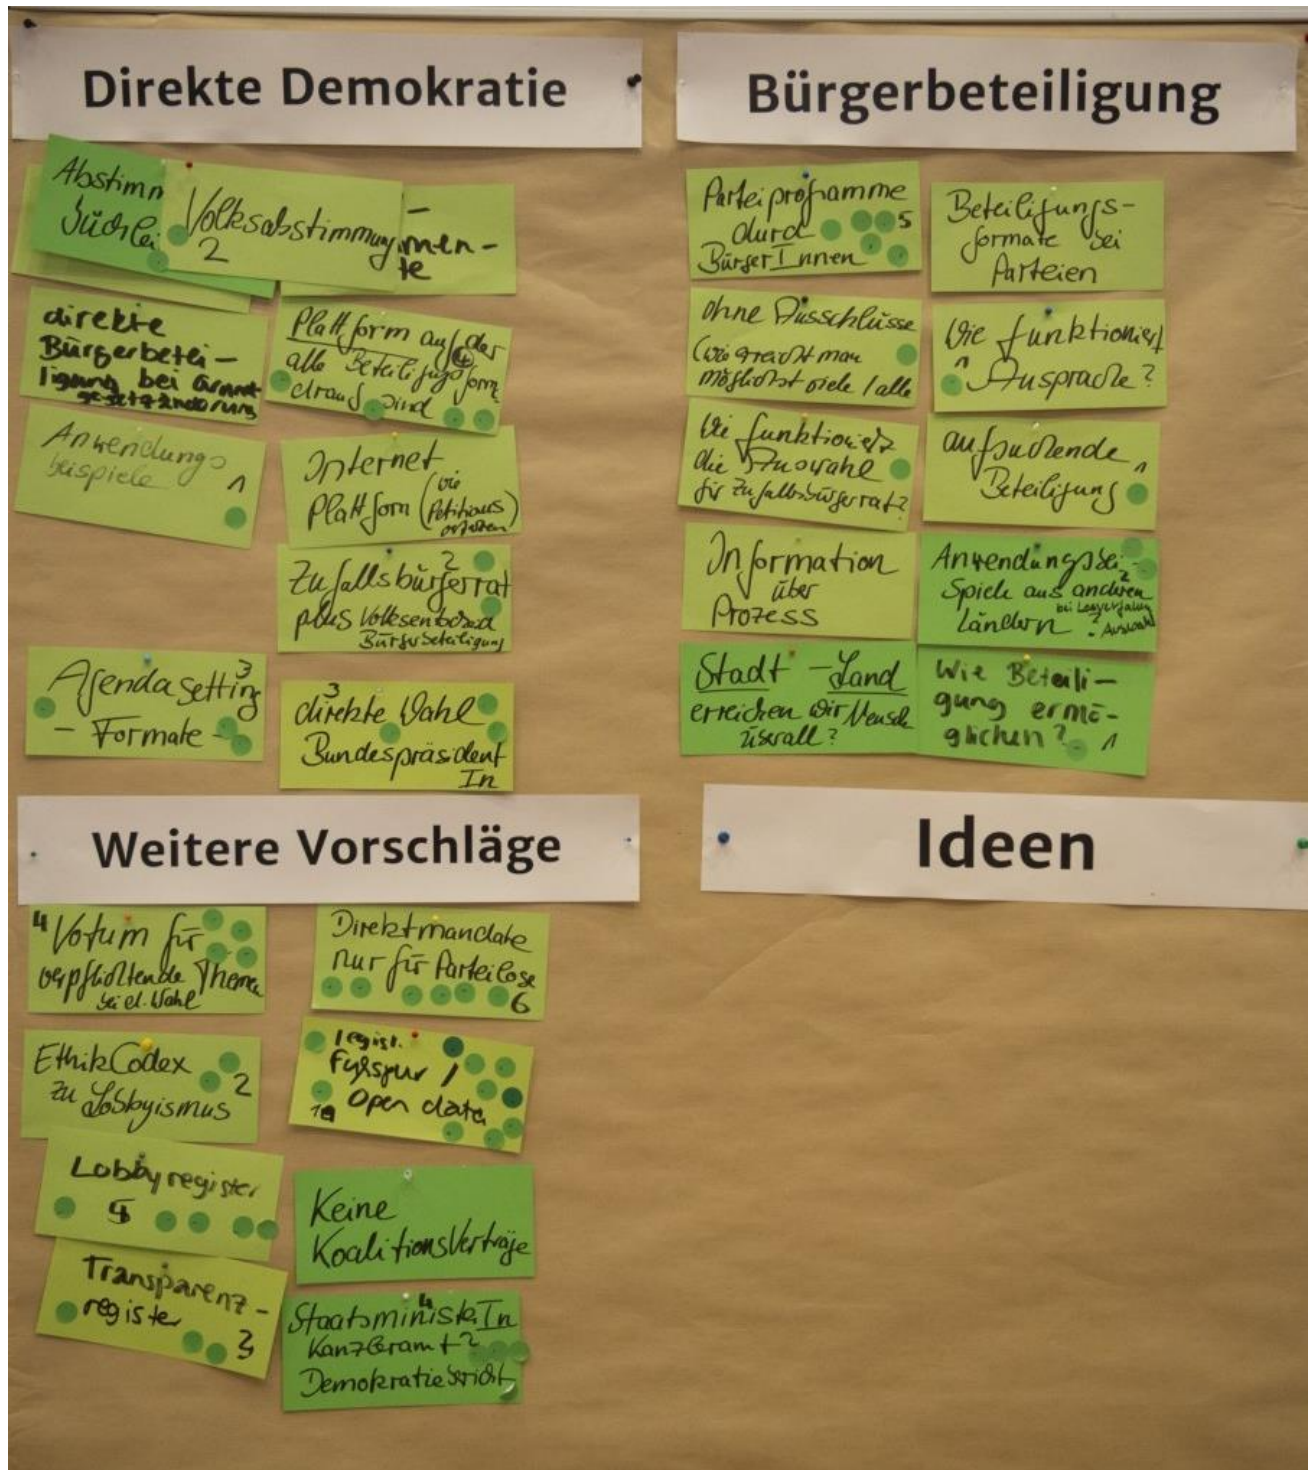 Direkte Demokratie
Abstimm
Volksabstimmung
2
men-
te
direkte
Bürgerbetei-
ligung bei Grund-
gesetzänderung
Plattform auf der
4
alle Beteiligugsform
drauf sind
Anwendungs
beispiele
1
Internet
Plattform (wie
Petitions)
Zufallsbürgerrat
2
plus Volksentscheid
Bürgerbeteiligung
Agenda setting
3
- Formate -
3
direkte Wahl
Bundespräsident
In
Bürgerbeteiligung
Parteiprogramme
durch
5
BürgerInnen
Beteiligungs-
formate bei
Parteien
ohne Ausschlüsse
(wie erreicht man
möglichst viele / alle
Wie funktioniert
1
Ansprache?
Wie funktioniert
die Auswahl
für Zufallsbürgerrat?
aufsuchende
1
Beteiligung
Information
über
Prozess
Anwendungsbei-
2
spiele aus anderen
Ländern
? Auswahl
Stadt - Land
erreichen wir Mensch
überall?
Wie Beteili-
gung ermö-
glichen?
1
Weitere Vorschläge
4
Votum für
verpflichtende Themen
bei el. Wahl
Direktmandate
nur für Parteilose
6
EthikCodex
2
zu Lobbyismus
legisl.
Fußspur /
Open data
Lobbyregister
5
Keine
KoalitionsVerträje
Transparenz-
register
3
4
StaatsministerIn
Kanzleramt?
Demokratiebericht
Ideen